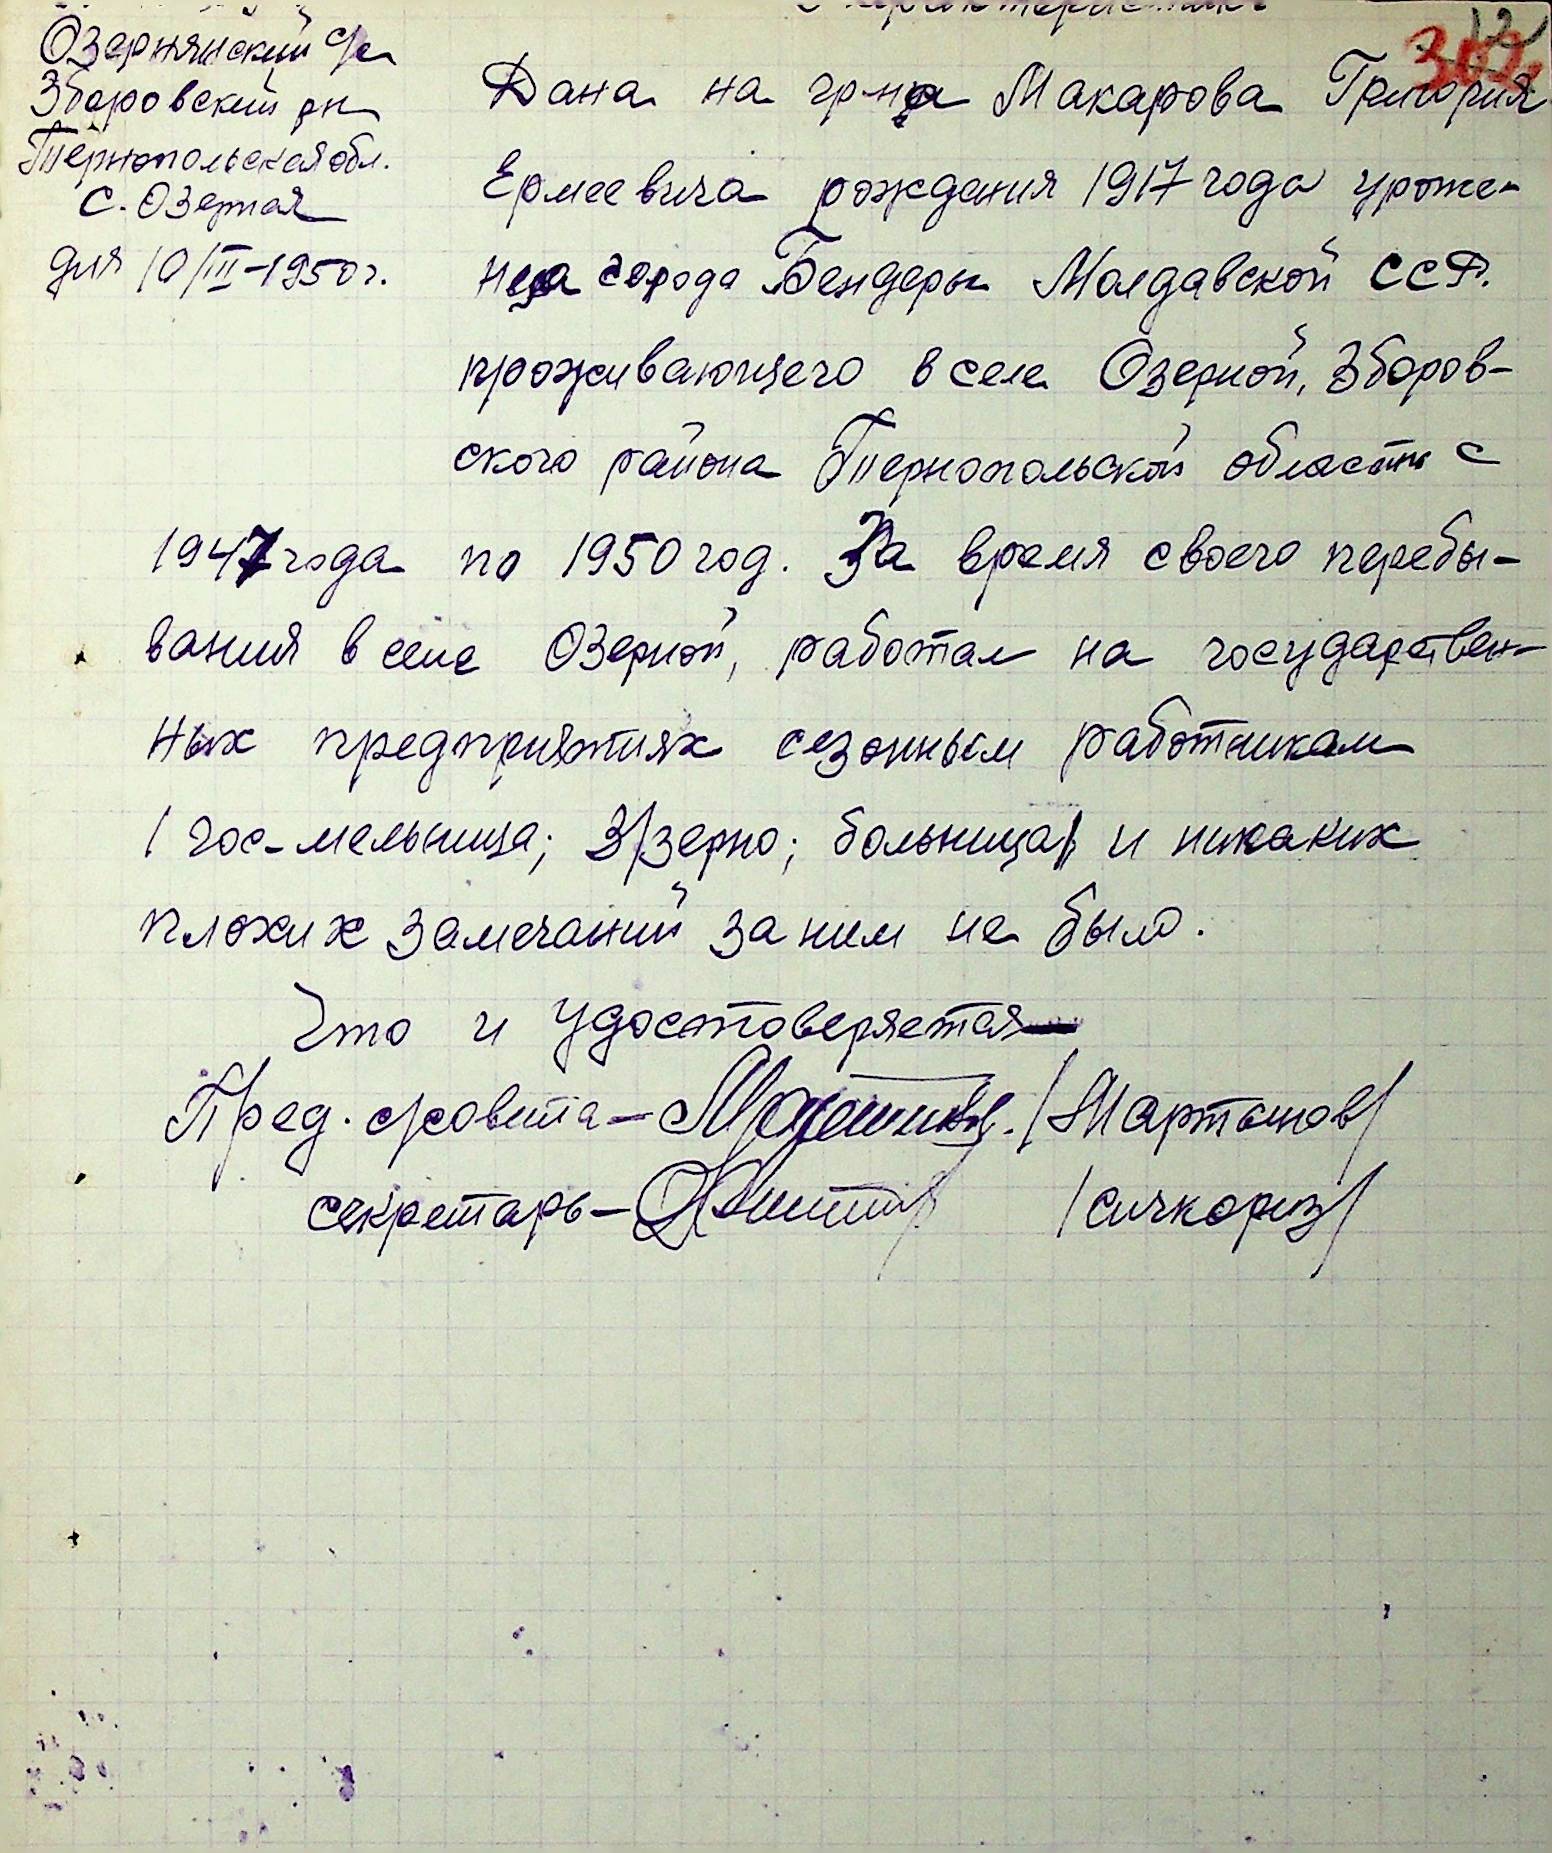 Характеристика
12
302
Озернянский с/с
Зборовский рн
Тернопольская обл.
с. Озерная
дня 10/III-1950 г.
Дана на гр-на Макарова Григория
Ермеевича рождения 1917 года уроже-
нца города Бендеры Молдавской ССР.
проживающего в селе Озерной, Зборов-
ского района Тернопольской области с
1947 года по 1950 год. За время своего перебы-
вания в селе Озерной, работал на государствен-
ных предприятиях сезонным работникам
/ гос-мельница; З/зерно; больница/ и никаких
плохих замечаний за ним не было.
Что и удостоверяется
Пред. с/совета – /Мартынов/
секретарь – /Сичкориз/